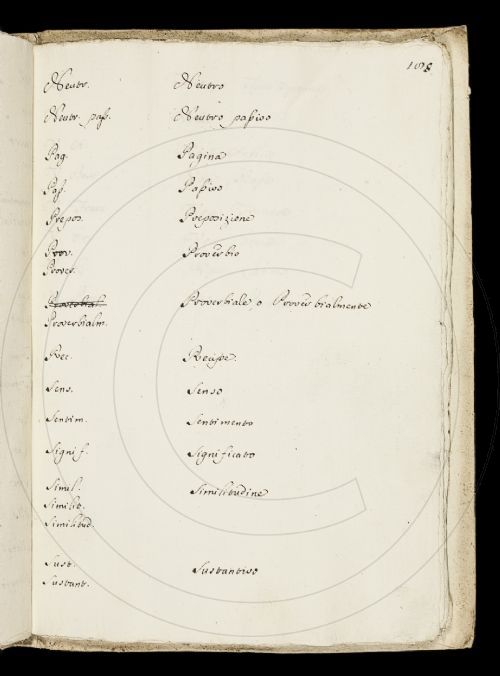 1078
Neutr. Neutro
Neutr. paſs. Neutro paſsivo
Pag. Pagina
Paſs. Paſsivo
Prepos. Preposizione
Prov. Proverbio
Prover.
Proverbial. Proverbiale, o Proverbialmente
Proverbialm.
Rec. Recipe.
Sens. Senso
Sentim. Sentimento
Signif. Significato
Simil. Similitudine
Similit.
Similitud.
Sust. Sustantivo
Sustant.